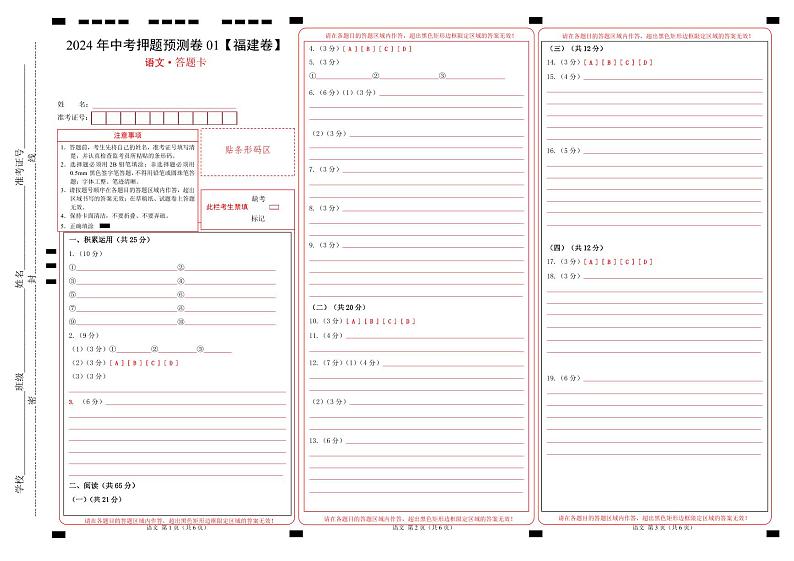 2024 年中考押题预测卷 01【福建卷】
语文·答题卡
姓 名：
准考证号：
注意事项
1．答题前，考生先将自己的姓名，准考证号填写清
楚，并认真检查监考员所粘贴的条形码。
2．选择题必须用 2B 铅笔填涂；非选择题必须用
0.5mm 黑色签字笔答题，不得用铅笔或圆珠笔答
题；字体工整、笔迹清晰。
3．请按题号顺序在各题目的答题区域内作答，超出
区域书写的答案无效；在草稿纸、试题卷上答题
无效。
4．保持卡面清洁，不要折叠、不要弄破。
5．正确填涂
贴条形码区
此栏考生禁填
缺考
标记
一、积累运用（共 25 分）
1.（10 分）
① ②
③ ④
⑤ ⑥
⑦ ⑧
⑨ ⑩
2.（9 分）
（1）（3 分）① ② ③
（2）（3 分）[ A ] [ B ] [ C ] [ D ]
（3）（3 分）
3. （6 分）
二、阅读（共 65 分）
（一）（共 21 分）
请在各题目的答题区域内作答，超出黑色矩形边框限定区域的答案无效！
语文 第 1 页（共 6 页）
请在各题目的答题区域内作答，超出黑色矩形边框限定区域的答案无效！
4.（3 分）[ A ] [ B ] [ C ] [ D ]
5.（3 分）
① ② ③
6.（6 分）（1）（3 分）
（2）（3 分）
7.（3 分）
8.（3 分）
9.（3 分）
（二）（共 20 分）
10.（3 分）[ A ] [ B ] [ C ] [ D ]
11.（4 分）
12.（7 分）（1）（4 分）
（2）（3 分）
13.（6 分）
请在各题目的答题区域内作答，超出黑色矩形边框限定区域的答案无效！
语文 第 2 页（共 6 页）
请在各题目的答题区域内作答，超出黑色矩形边框限定区域的答案无效！
（三）（共 12 分）
14.（3 分）[ A ] [ B ] [ C ] [ D ]
15.（4 分）
16.（5 分）
（四）（共 12 分）
17.（3 分）[ A ] [ B ] [ C ] [ D ]
18.（3 分）
19.（6 分）
请在各题目的答题区域内作答，超出黑色矩形边框限定区域的答案无效！
语文 第 3 页（共 6 页）
学校 班级 姓名 准考证号
密 封 线